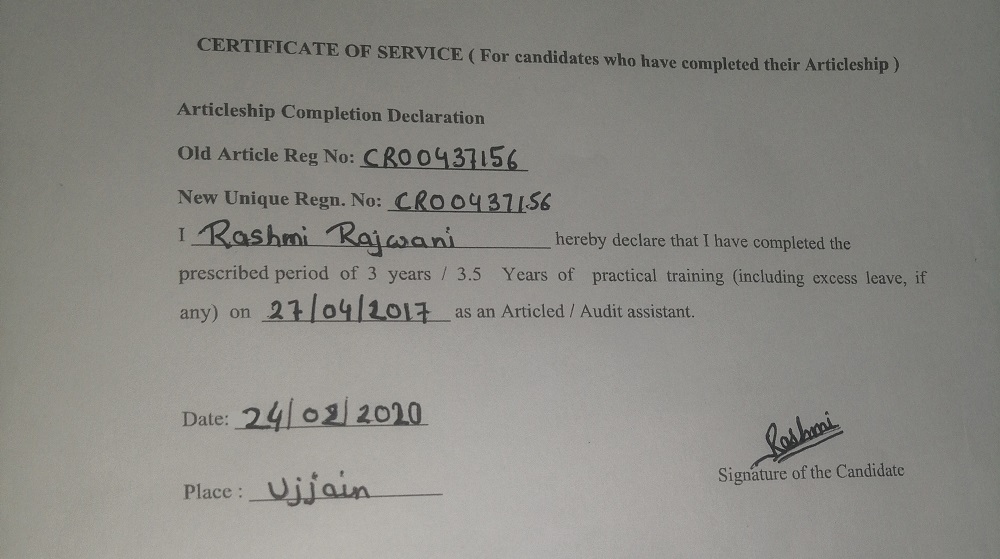 CERTIFICATE OF SERVICE ( For candidates who have completed their Articleship )
Articleship Completion Declaration
Old Article Reg No: CRO0437156
New Unique Regn. No: CRO0437156
I Rashmi Rajwani hereby declare that I have completed the
prescribed period of 3 years / 3.5 Years of practical training (including excess leave, if
any) on 27/04/2017 as an Articled / Audit assistant.
Date: 24/02/2020
Rashmi
Signature of the Candidate
Place : Ujjain